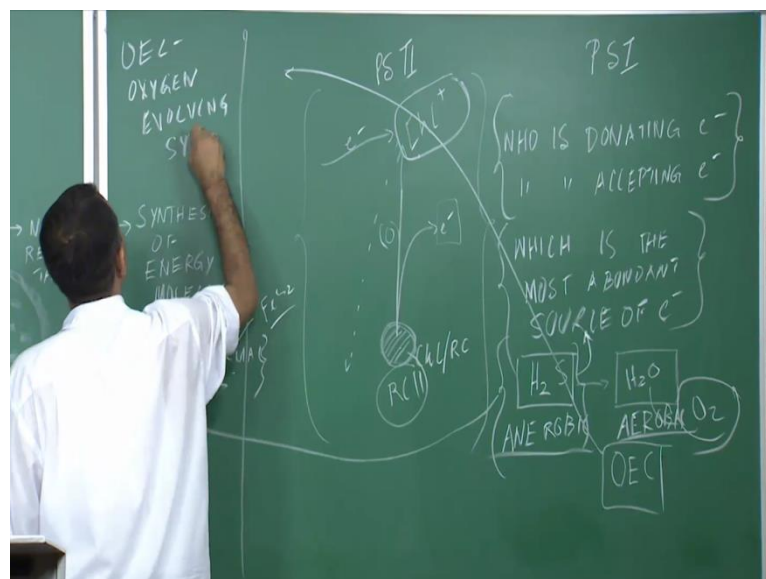 OEC-
OXYGEN
EVOLVING
SY
SYNTHES
OF
ENERGY
PS II
e-
e-
RC II
PSI
WHO IS DONATING e-
" " ACCEPTING e-
WHICH IS THE
MOST ABONDANT
SOURCE OF e-
H2S → H2O
O2
OEC